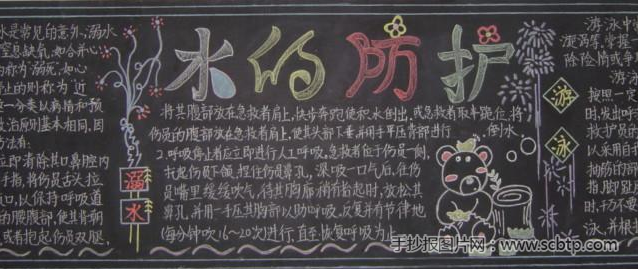 水的防护
水是常见的意外、溺水
窒息缺氧,如合并心
为称为"溺死",如心
止的则称为近
一分类以病情和预
救治原则基本相同,因
方法有:
立即清除其口鼻腔内
手指,将伤员舌头拉
口,以保持呼吸道
的腰腹部,使其背朝
或者抱起伤员双腿,
溺
水
将其腹部放在急救者肩上,快步奔跑使积水倒出,或急救者取半跪位,将
伤员的腹部放在急救者肩上,使其头部下垂并用手平压背部进行倒水
2.呼吸停止者应立即进行人工呼吸,急救者位于伤员一侧,
托起伤员下颌,捏住伤员鼻孔,深吸一口气后,往伤
员嘴里缓缓吹气,待其胸廓稍有抬起时,放松其
鼻孔,并用一手压其胸部以助呼吸,反复并有节律地
(每分钟吹16~20次)进行,直至恢复呼吸为止
游
泳
游泳中
漩涡等,掌握
除险情或争
按照一定
时,发出呼
救护员
以采用自
抽筋
指,脚趾
时,千万不要
手抄报图片网:www.scbtp.com